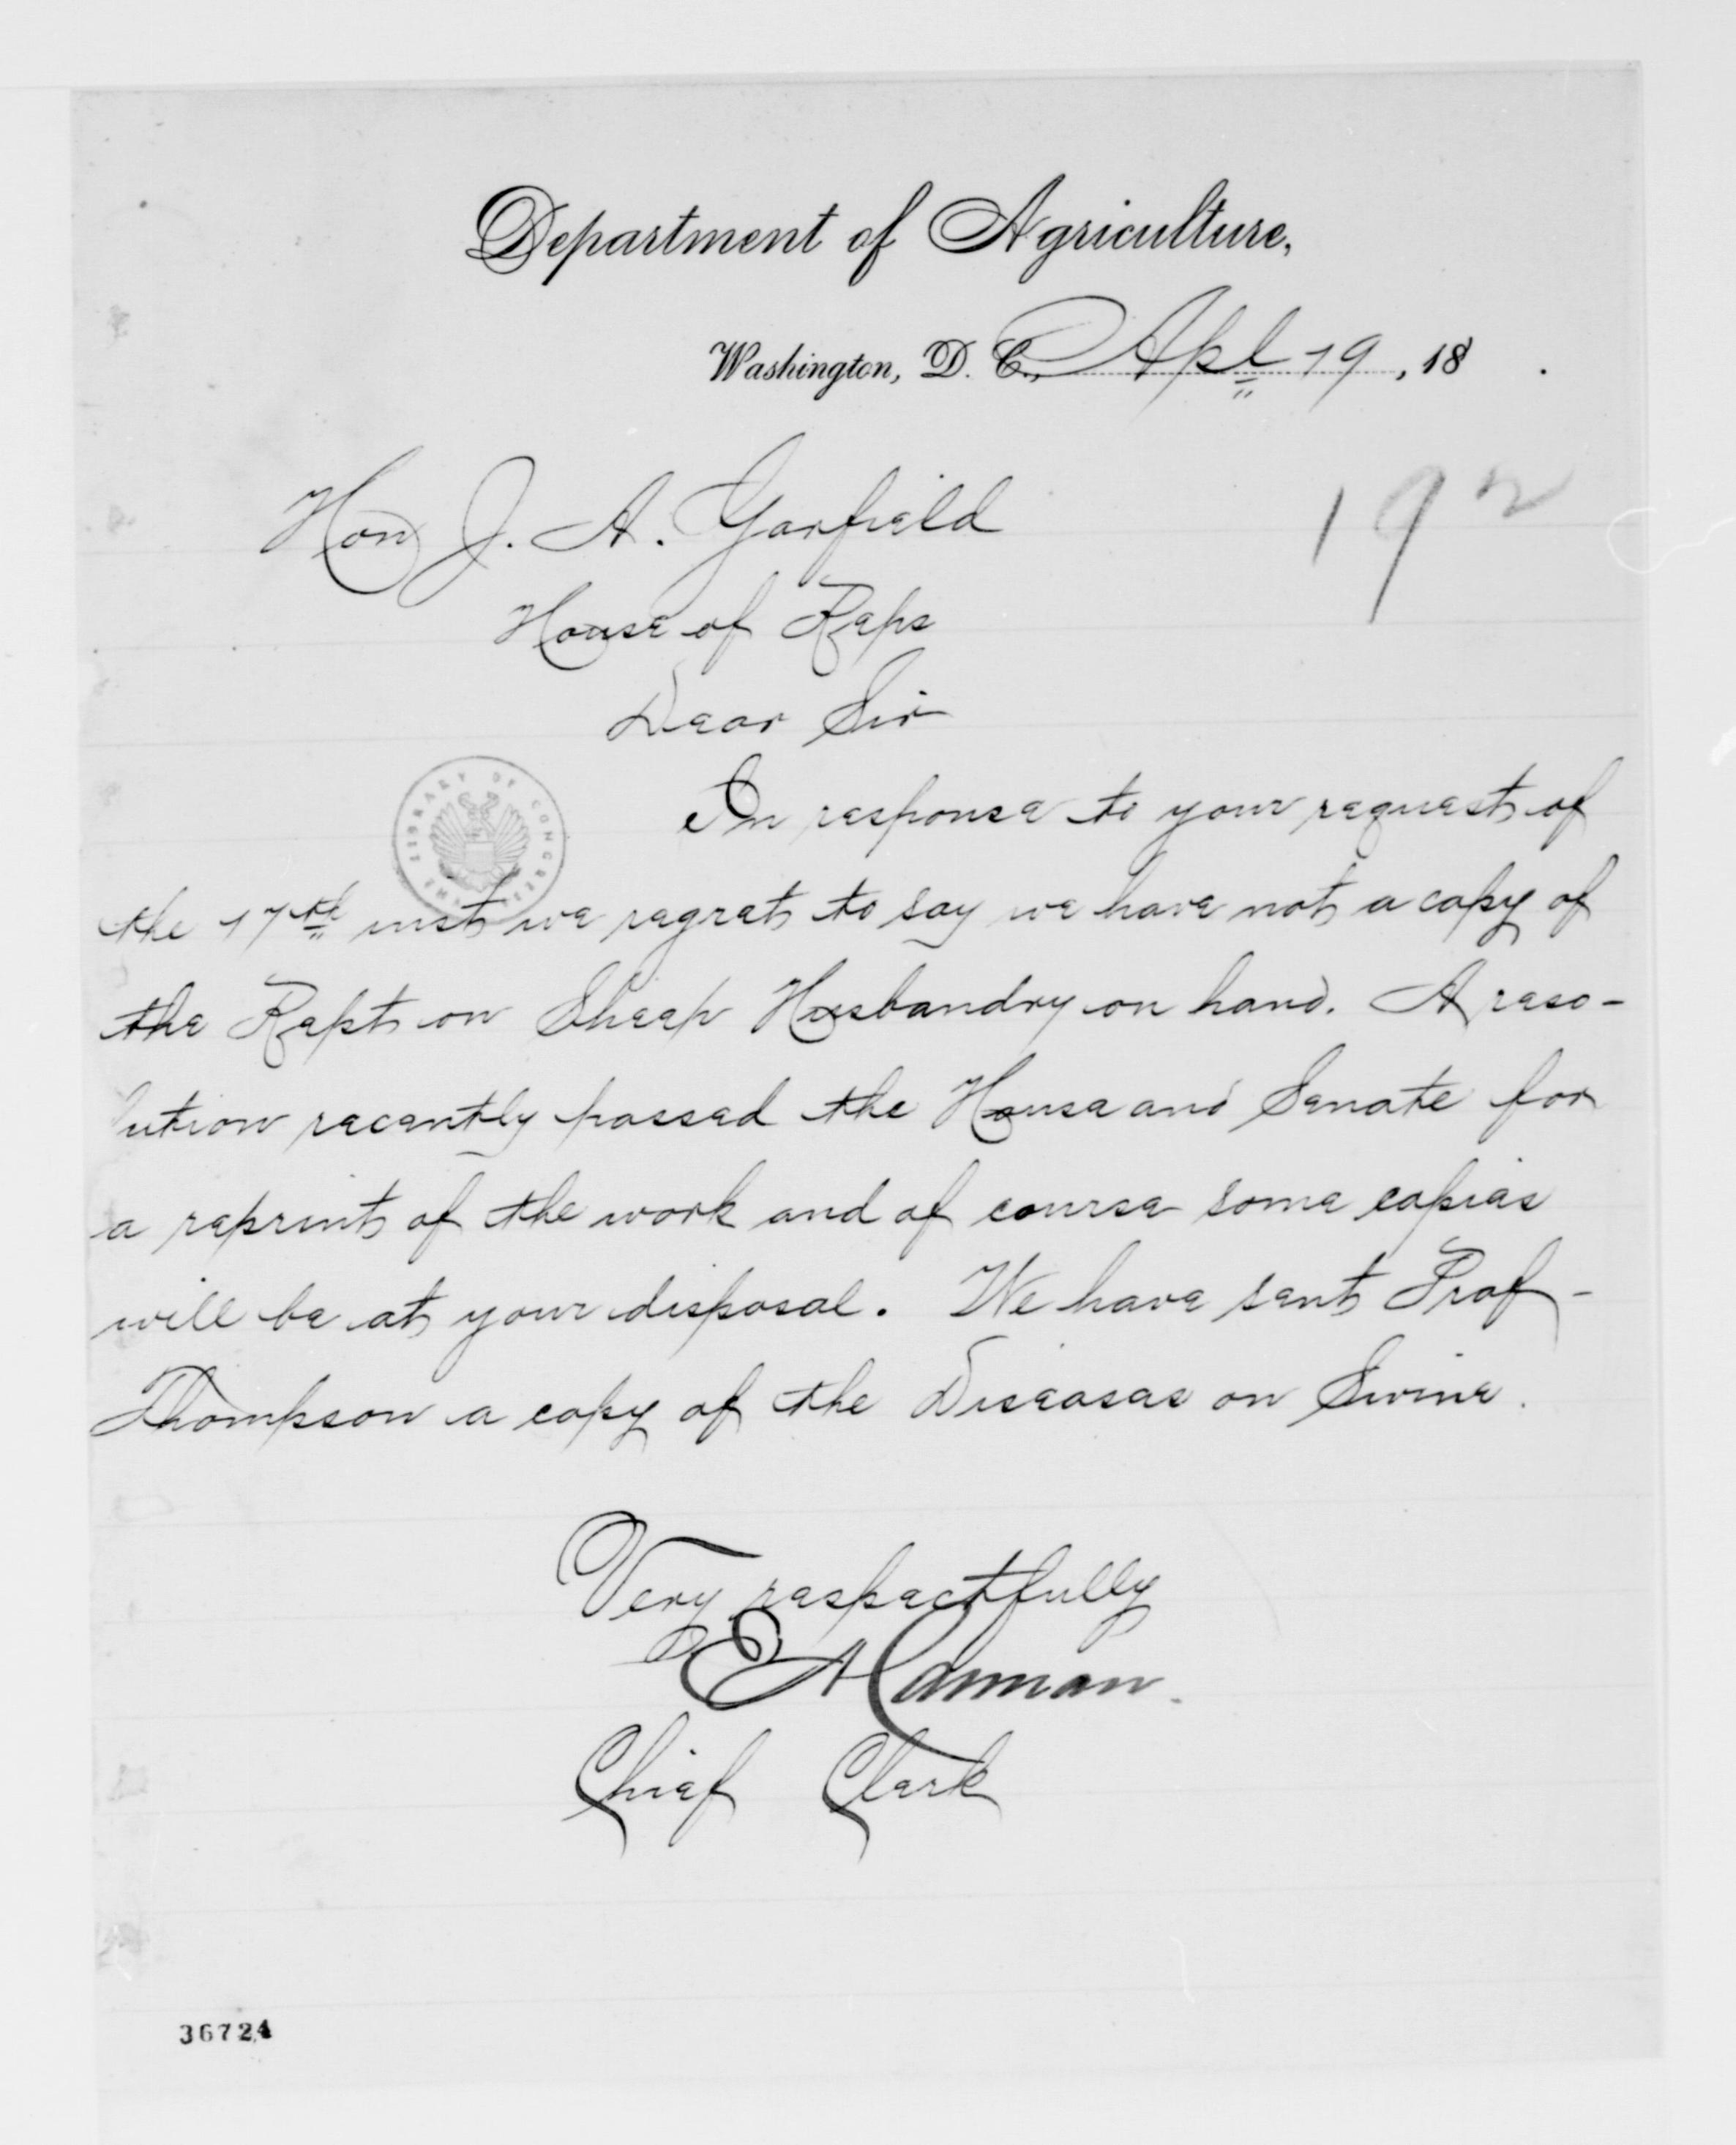 Department of Agriculture,
Washington, D. C., Apl 19, 18 .
19
Hon J. A. Garfield
House of Reps
Dear Sir
In response to your request of
THE LIBRARY OF CONGRESS
the 17th inst we regret to say we have not a copy of
the Rept on Sheep Husbandry on hand. A reso-
lution recently passed the House and Senate for
a reprint of the work and of course some copies
will be at your disposal. We have sent Prof-
Thompson a copy of the Diseases on Swine.
Very respectfully
E A Carman.
Chief Clerk
36724